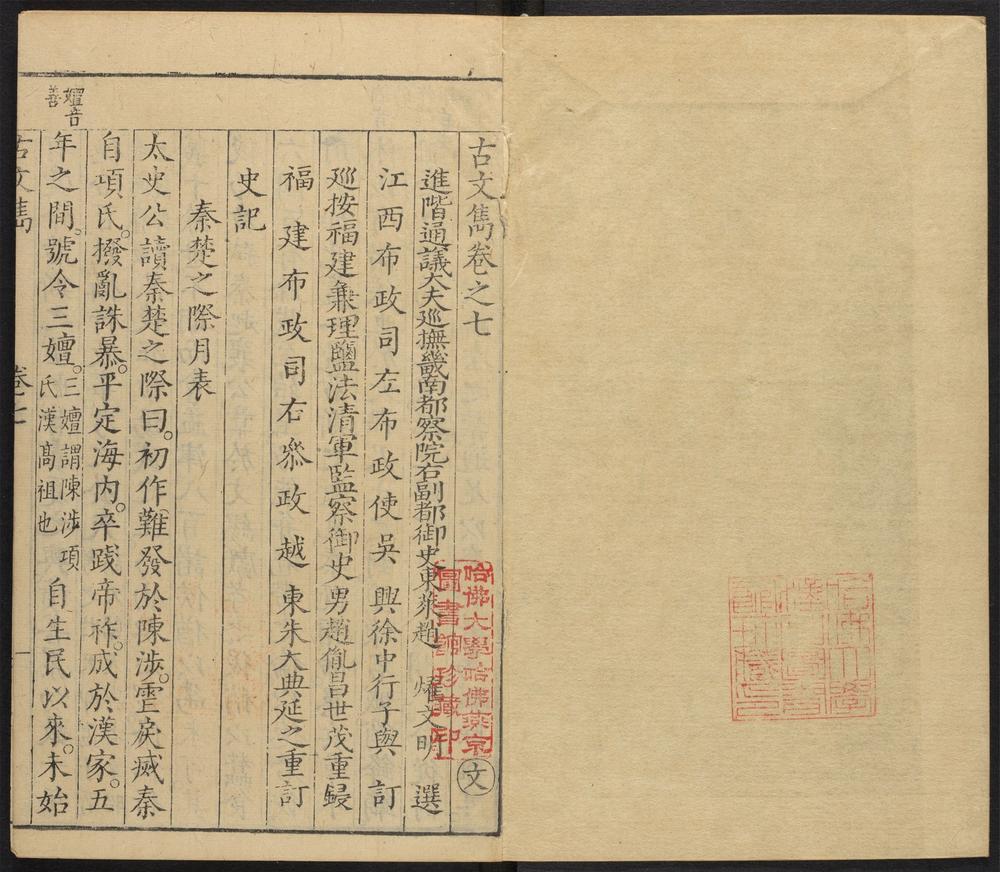 古文雋卷之七
文
進階通議大夫廵撫畿南都察院右副都御史東萊趙　燿文明　選
江西布政司左布政使吳興徐中行子與　訂
廵按福建兼理鹽法清軍監察御史男趙胤昌世茂重鋟
福建布政司右叅政越東朱大典延之重訂
哈佛大學哈佛燕京
圖書館珍藏印
史記
秦楚之際月表
太史公讀秦楚之際曰。初作難發於陳涉。虐戾滅秦
自項氏。撥亂誅暴。平定海内。卒踐帝祚。成於漢家。五
嬗音
善
年之間。號令三嬗。三嬗謂陳涉項氏漢高祖也自生民以來。未始
古文雋　卷七　一